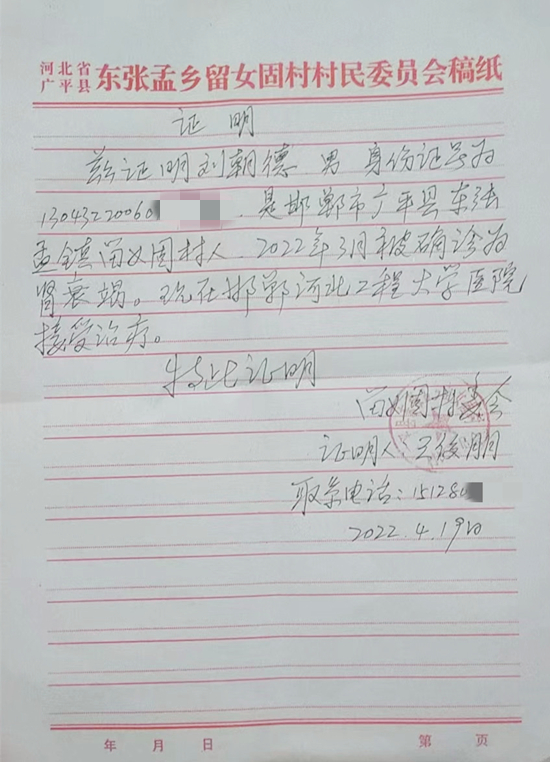 河北省
广平县 东张孟乡留女固村村民委员会稿纸
证明
兹证明刘朝德 男 身份证号为
13043220060 ，是邯郸市广平县东张
孟镇留女固村人，2022年3月被确诊为
肾衰竭。现在邯郸河北工程大学医院
接受治疗。
特此证明
留女固村委会
证明人：王
联系电话：15128
2022.4.19日
年 月 日 第 页